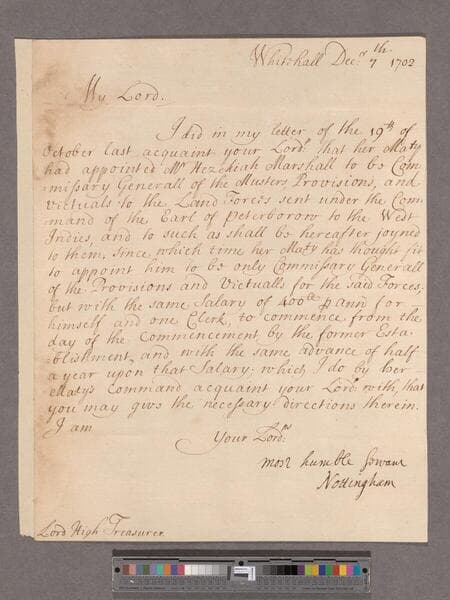 Whitehall Dec.r 7th 1702
My Lord.
I did in my letter of the 19th of
October last acquaint your Lord.p that her Ma.ty
had appointed Mr Hezekiah Marshall to be Com-
missary Generall of the Musters, Provisions, and
victuals to the Land Forces sent under the Com-
mand of the Earl of Peterborow to the West
Indies, and to such as shall be hereafter joyned
to them. Since which time her Ma.ty has thought fit
to appoint him to be only Commissary Generall
of the Provisions and Victualls for the said Forces,
but with the same Salary of 400 p ann for
himself and one Clerk, to commence from the
day of the Commencement by the former Esta-
blishment, and with the same advance of half
a year upon that Salary. which I do by her
Maty's Command acquaint your Lord.p with, that
you may give the necessary directions therein.
I am
Your Lord.ps
most humble Servant
Nottingham
Lord High Treasurer.